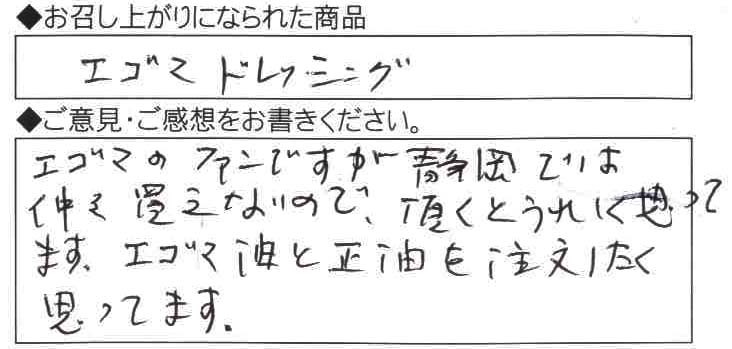 ◆お召し上がりになられた商品
エゴマ ドレッシング
◆ご意見・ご感想をお書きください。
エゴマのファンですが静岡では
仲々買えないので、頂くとうれしく思って
ます。エゴマ油と正油を注文したく
思ってます。